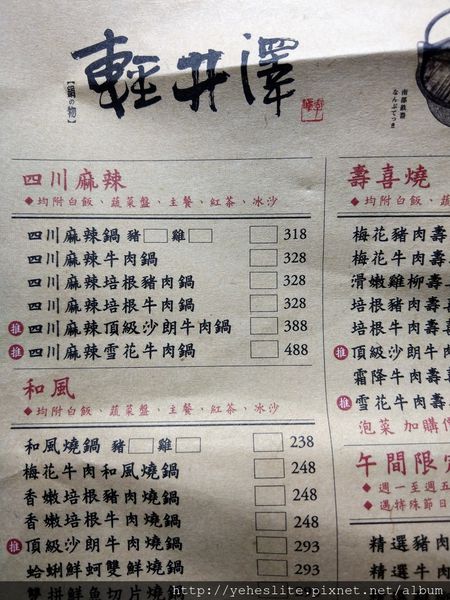 輕井澤
【鍋の物】
南部鉄器
なんぶてつき
四川麻辣
◆均附白飯、蔬菜盤、主餐、紅茶、冰沙
四川麻辣鍋 豬 雞 318
四川麻辣牛肉鍋 328
四川麻辣培根豬肉鍋 328
四川麻辣培根牛肉鍋 328
推 四川麻辣頂級沙朗牛肉鍋 388
推 四川麻辣雪花牛肉鍋 488
和風
◆均附白飯、蔬菜盤、主餐、紅茶、冰沙
和風燒鍋 豬 雞 238
梅花牛肉和風燒鍋 248
香嫩培根豬肉燒鍋 248
香嫩培根牛肉燒鍋 248
推 頂級沙朗牛肉燒鍋 293
蛤蜊鮮蚵雙鮮燒鍋 293
雙拼鮮魚切片燒鍋
壽喜燒
◆均附白飯、蔬菜
梅花豬肉壽
梅花牛肉壽
滑嫩雞柳壽
培根豬肉壽
培根牛肉壽
推 頂級沙朗牛
霜降牛肉壽
推 雪花牛肉壽
泡菜加購價
午間限定
◆週一至週五
◆遇特殊節日
精選豬肉
精選牛肉
http://yeheslite.pixnet.net/album